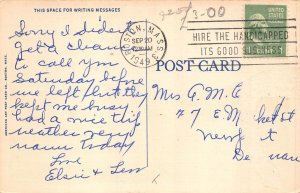 THIS SPACE FOR WRITING MESSAGES
Sorry I didn't
get a chance
to call you
Saturday before
we left but they
kept me busy
had a nice trip
weather very
warm today
Love
Elsie & Less
BOSTON, MASS.
SEP 20
1949
HIRE THE HANDICAPPED
ITS GOOD BUSINESS
3-00
POST CARD
Mrs G. M. C
77 E M